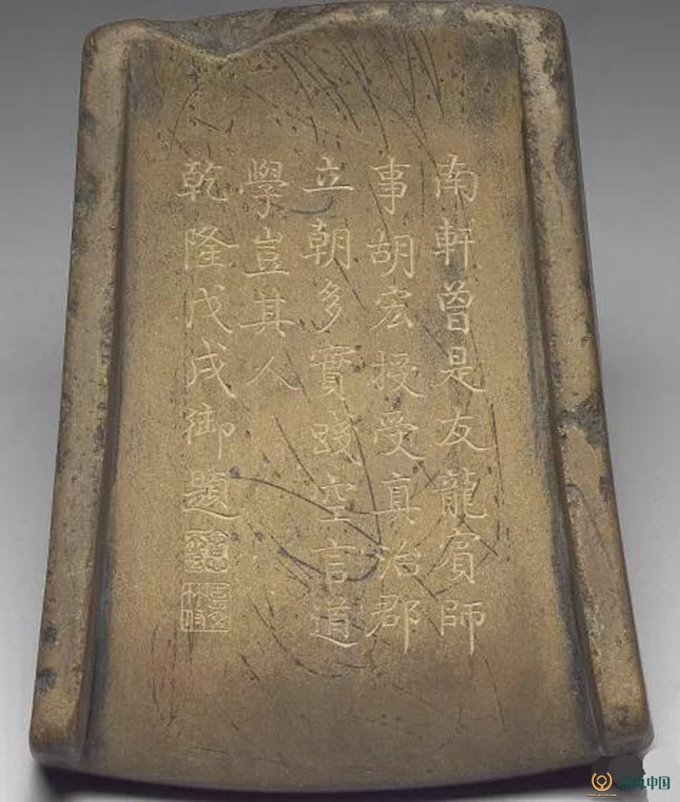 南軒曾是友龍賓師
事胡宏授受真治郡
立朝多實踐空言道
學豈其人
乾隆戊戌御題
中国